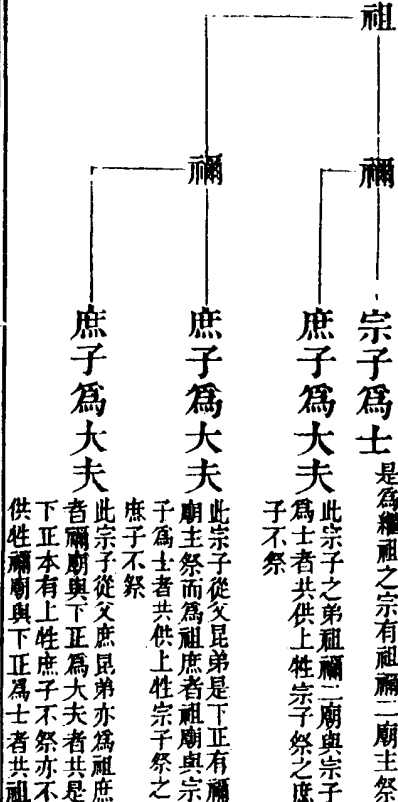 祖
禰
禰
宗子為士
是為繼祖之宗有祖禰二廟主祭
庶子為大夫
此宗子之弟祖禰二廟與宗子
為士者共供上牲宗子祭之庶
子不祭
庶子為大夫
此宗子從父昆弟是下正有禰
廟主祭而為祖庶者祖廟與宗
子為士者共供上牲宗子祭之
庶子不祭
庶子為大夫
此宗子從父庶昆弟亦為祖庶
者禰廟與下正為大夫者共是
下正本有上牲庶子不祭亦不
供牲禰廟與下正為士者共祖